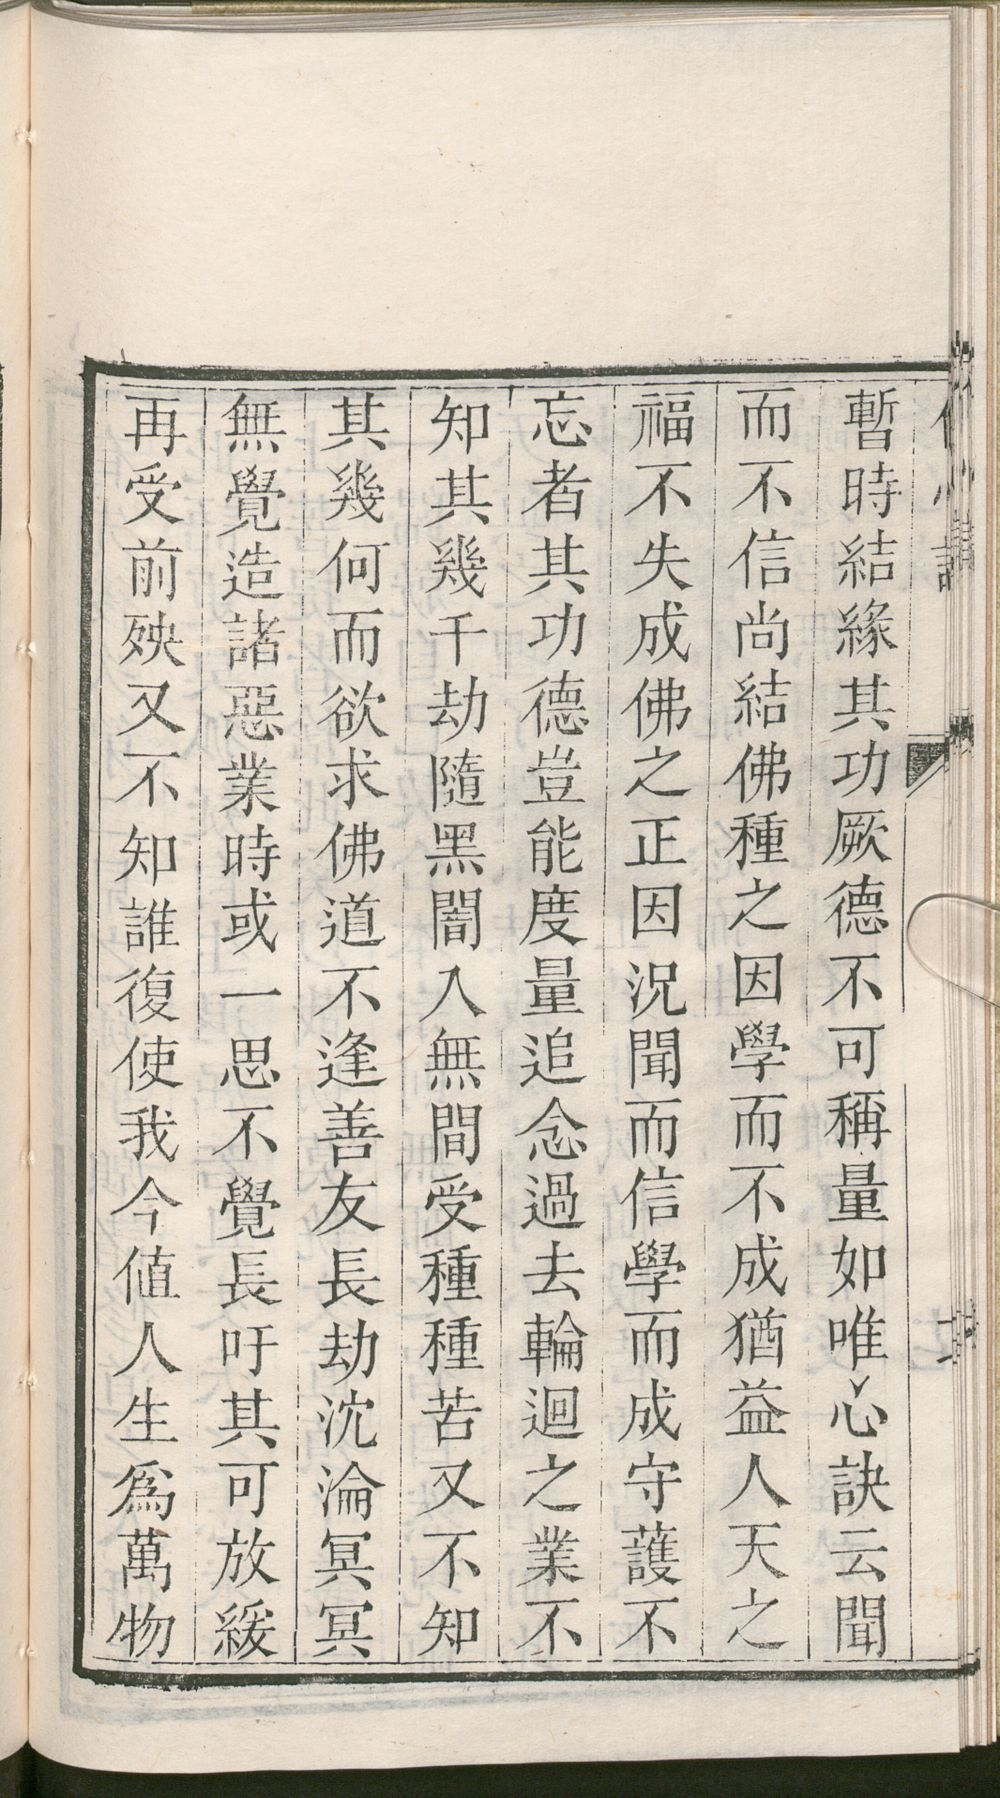 暫時結緣其功厥德不可稱量如唯心訣云聞
而不信尚結佛種之因學而不成猶益人天之
福不失成佛之正因況聞而信學而成守護不
忘者其功德豈能度量追念過去輪迴之業不
知其幾千劫隨黑闇入無間受種種苦又不知
其幾何而欲求佛道不逢善友長劫沈淪冥冥
無覺造諸惡業時或一思不覺長吁其可放緩
再受前殃又不知誰復使我今値人生爲萬物